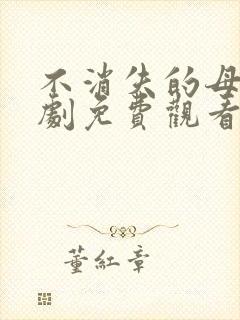 不消失的母
劇免費觀看
董紅章